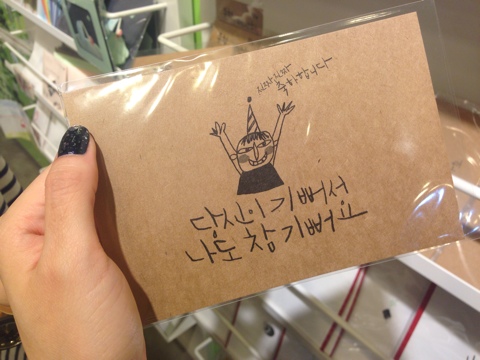 진짜진짜
축하합니다
당신이 기뻐서
나도 참 기뻐요